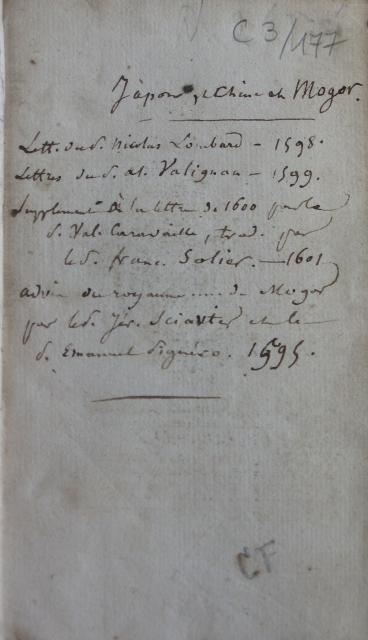 C 3/177
Japon, et Chine et Mogor.
Lett. du d. Nicolas Lombard – 1598.
Lettres du d. al. Valignan – 1599.
Supplement à la lettre de 1600 par le
d. Val. Caravaille, trad. par
le d. franc. Solier. – 1601
advis du royaume .... de Mogor
par le d. Jér. et le
d. Emanuel 1595.
CF